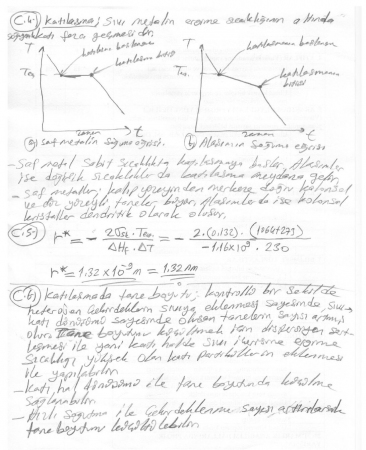 C.4) Katılaşma; Sıvı metalin ergime sıcaklığının altında
katı faza geçmesidir
T
katılaşma başlaması
katılaşma bitişi
Te
zaman
t
a) Saf metalin soğuma eğrisi.
T
katılaşmanın başlaması
katılaşmanın bitişi
Te
zaman
t
b) Alaşımın soğuma eğrisi
- Saf metal sabit sıcaklıkta katılaşmaya başlar. Alaşımlar
ise değişik sıcaklıklarda katılaşma meydana gelir.
- Saf metaller, kalıp yüzeyinden merkeze doğru kolonsal
ve düz yüzeyli taneler büyür. Alaşımlarda ise kolonsal
kristaller dendritik olarak oluşur.
C.5) r* = - 2 . Te / ΔHf . ΔT = - 2 . (0.132) . (1064+273) / -1.16x10⁹ . 230
r* = 1.32x10⁻⁹ m = 1.32 nm
C.6) Katılaşmada tane boyutu; kontrollü bir şekilde
heterojen çekirdeklerin sıvıya eklenmesi sayesinde sıvı-
katı dönüşümü sayesinde oluşan tanelerin sayısı artmış
olur. Tane boyutunu küçültmek için dispersiyon sert-
leşmesi ile yani katı halde sıvı içerisine ergime
sıcaklığı yüksek olan katı partiküllerin eklenmesi
ile yapılabilir.
- Katı hal dönüşümü ile tane boyutunda küçülme
sağlanabilir.
- Hızlı soğutma ile çekirdeklenme sayısı arttırılarak
tane boyutu küçültülebilir.